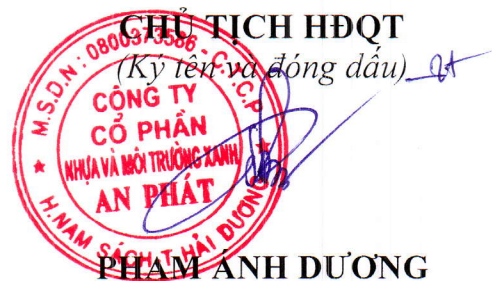 CHỦ TỊCH HĐQT
(Ký tên và đóng dấu)
M.S.D.N: 0800373586 - C.T.C.P
CÔNG TY
CỔ PHẦN
NHỰA VÀ MÔI TRƯỜNG XANH
AN PHÁT
H. NAM SÁCH - T. HẢI DƯƠNG
PHẠM ÁNH DƯƠNG